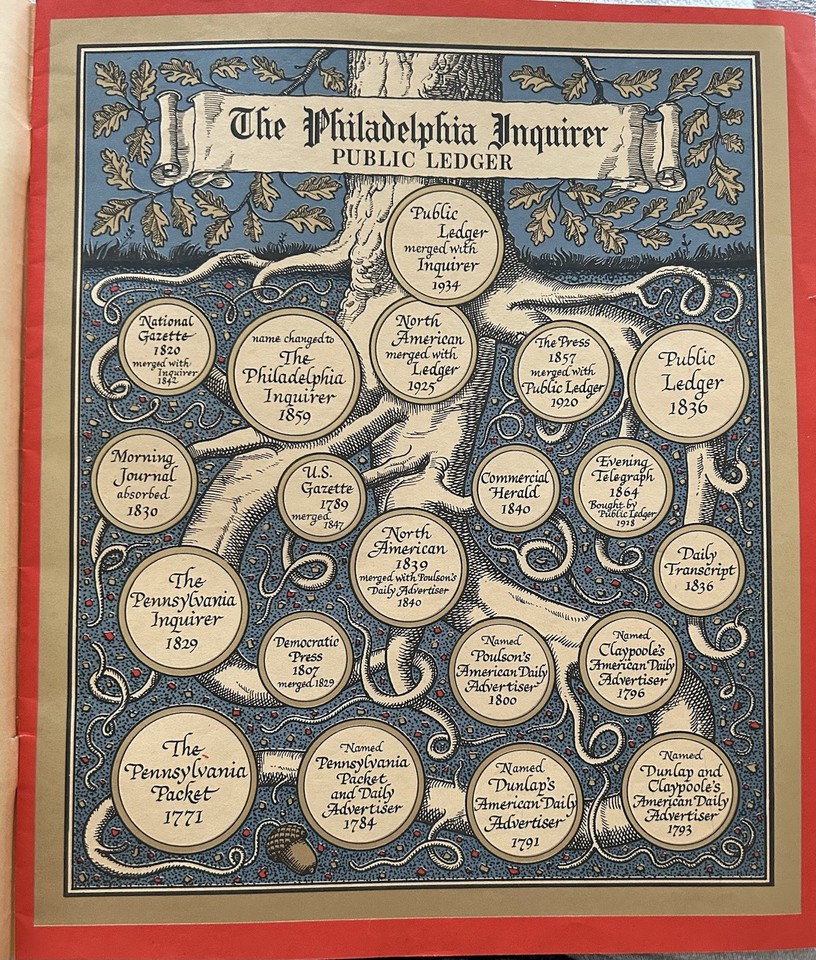 The Philadelphia Inquirer
PUBLIC LEDGER
Public
Ledger
merged with
Inquirer
1934
National
Gazette
1820
merged with
Inquirer
1842
name changed to
The
Philadelphia
Inquirer
1859
North
American
merged with
Ledger
1925
The Press
1857
merged with
Public Ledger
1920
Public
Ledger
1836
Morning
Journal
absorbed
1830
U.S.
Gazette
1789
merged
1847
Commercial
Herald
1840
Evening
Telegraph
1864
Bought by
Public Ledger
1918
North
American
1839
merged with Poulson's
Daily Advertiser
1840
Daily
Transcript
1836
The
Pennsylvania
Inquirer
1829
Democratic
Press
1807
merged 1829
Named
Poulson's
American Daily
Advertiser
1800
Named
Claypoole's
American Daily
Advertiser
1796
The
Pennsylvania
Packet
1771
Named
Pennsylvania
Packet
and Daily
Advertiser
1784
Named
Dunlap's
American Daily
Advertiser
1791
Named
Dunlap and
Claypoole's
American Daily
Advertiser
1793